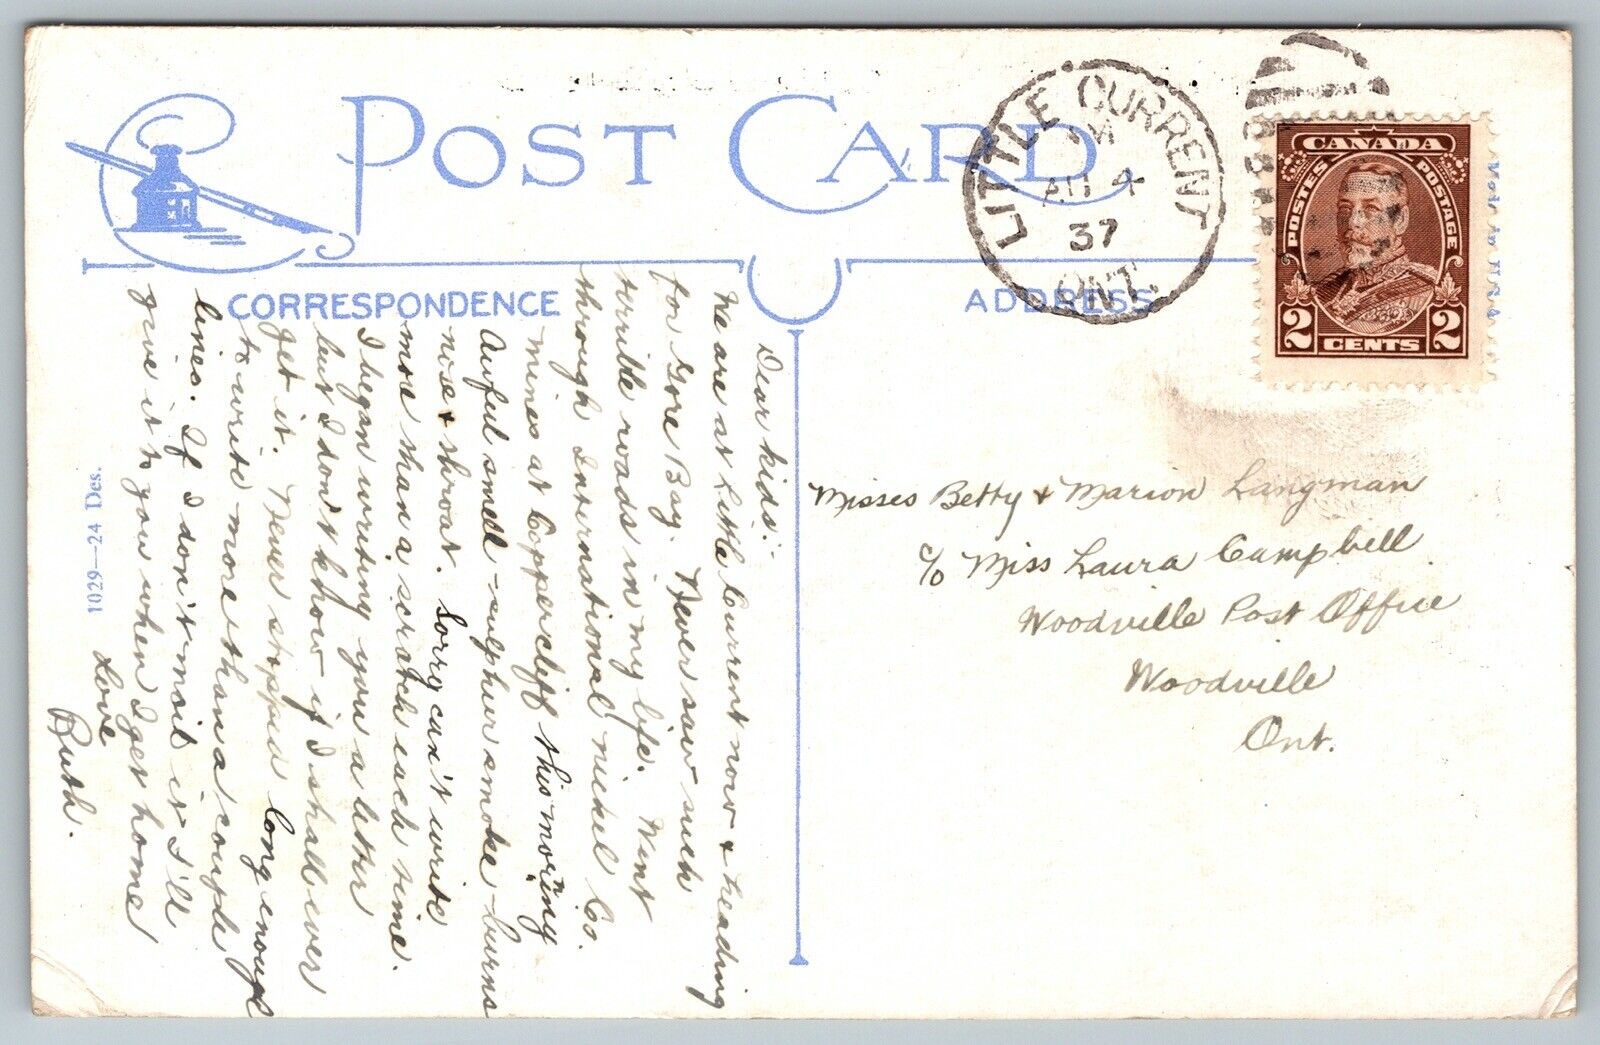 POST CARD
CORRESPONDENCE
ADDRESS
LITTLE CURRENT
M
AU 4
37
ONT.
CANADA
POSTES POSTAGE
2 CENTS 2
Made in USA
Dear kids:-
We are at Little Current now & heading
for Gore Bay. Never saw such
terrible roads in my life. Went
through International nickel Co.
mines at Coppercliff this morning
Awful smell - sulphur smoke - burns
nose & throat. Sorry can't write
more than a scratch each time.
I began writing you a letter
but I don't know if I shall ever
get it. Never stopped long enough
to write more than a couple
lines. If I don't mail it I'll
give it to you when I get home
Love
Ruth.
1029—24 Des.
Misses Betty & Marion Langman
c/o Miss Laura Campbell
Woodville Post Office
Woodville
Ont.